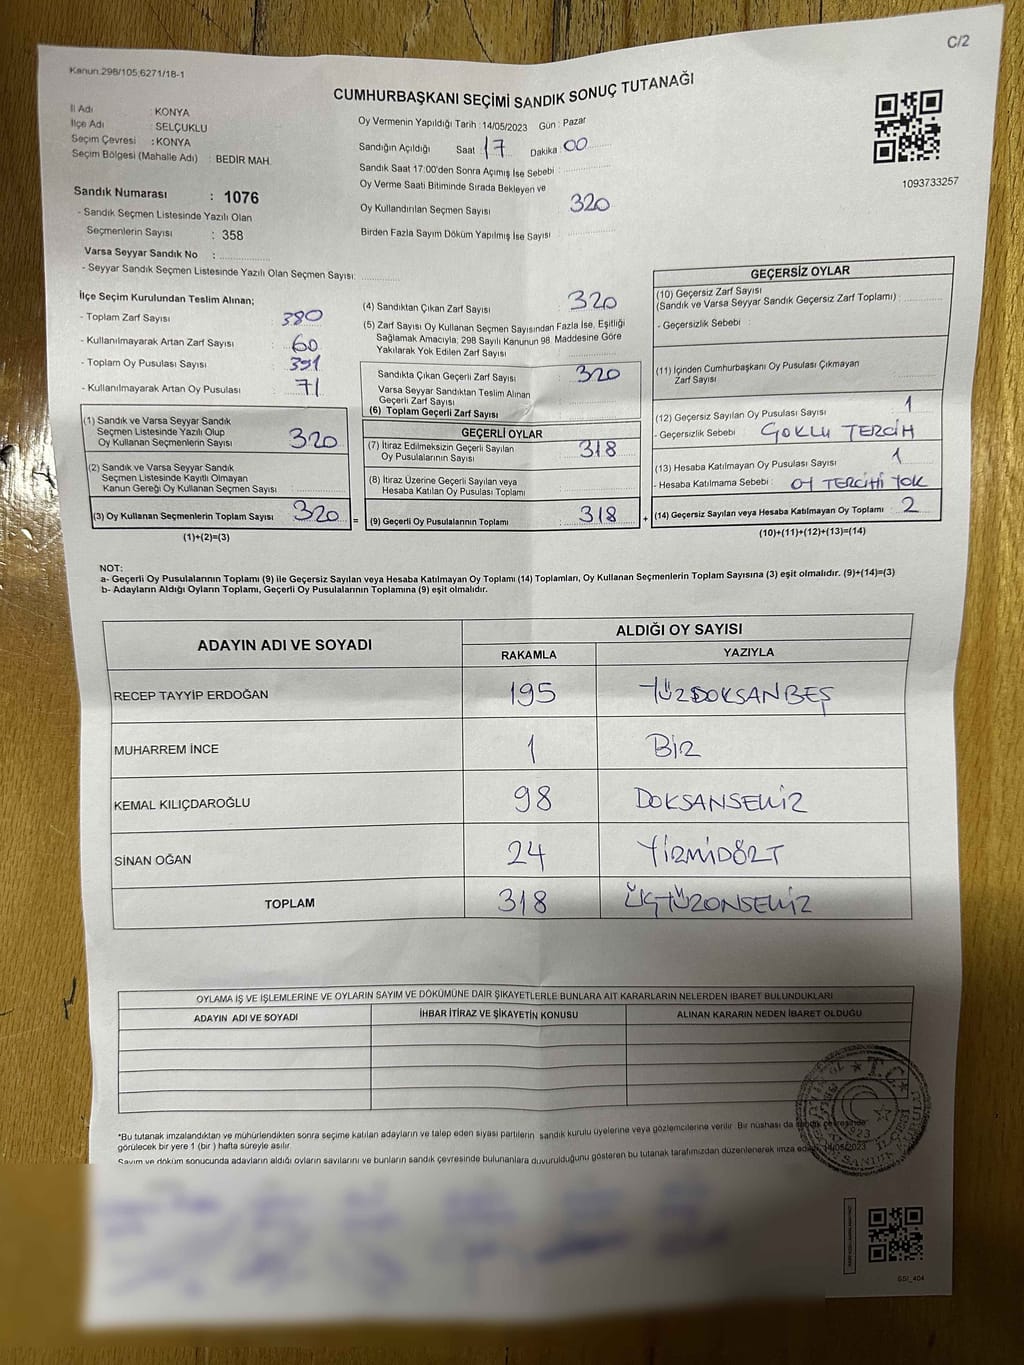 C/2
Kanun:298/105,6271/18-1
CUMHURBAŞKANI SEÇİMİ SANDIK SONUÇ TUTANAĞI
İl Adı : KONYA
İlçe Adı : SELÇUKLU
Seçim Çevresi : KONYA
Seçim Bölgesi (Mahalle Adı) : BEDİR MAH.
Sandık Numarası : 1076
- Sandık Seçmen Listesinde Yazılı Olan
Seçmenlerin Sayısı : 358
Varsa Seyyar Sandık No :
- Seyyar Sandık Seçmen Listesinde Yazılı Olan Seçmen Sayısı:
Oy Vermenin Yapıldığı Tarih : 14/05/2023 Gün : Pazar
Sandığın Açıldığı Saat 17 Dakika 00
Sandık Saat 17:00'den Sonra Açımış İse Sebebi :
Oy Verme Saati Bitiminde Sırada Bekleyen ve
Oy Kullandırılan Seçmen Sayısı : 320
Birden Fazla Sayım Döküm Yapılmış İse Sayısı
1093733257
İlçe Seçim Kurulundan Teslim Alınan;
- Toplam Zarf Sayısı : 380
- Kullanılmayarak Artan Zarf Sayısı : 60
- Toplam Oy Pusulası Sayısı : 391
- Kullanılmayarak Artan Oy Pusulası : 71
(1) Sandık ve Varsa Seyyar Sandık
Seçmen Listesinde Yazılı Olup
Oy Kullanan Seçmenlerin Sayısı : 320
(2) Sandık ve Varsa Seyyar Sandık
Seçmen Listesinde Kayıtlı Olmayan
Kanun Gereği Oy Kullanan Seçmen Sayısı :
(3) Oy Kullanan Seçmenlerin Toplam Sayısı : 320
(1)+(2)=(3)
(4) Sandıktan Çıkan Zarf Sayısı : 320
(5) Zarf Sayısı Oy Kullanan Seçmen Sayısından Fazla İse, Eşitliği
Sağlamak Amacıyla; 298 Sayılı Kanunun 98. Maddesine Göre
Yakılarak Yok Edilen Zarf Sayısı :
Sandıkta Çıkan Geçerli Zarf Sayısı : 320
Varsa Seyyar Sandıktan Teslim Alınan
Geçerli Zarf Sayısı :
(6) Toplam Geçerli Zarf Sayısı
GEÇERLİ OYLAR
(7) İtiraz Edilmeksizin Geçerli Sayılan
Oy Pusulalarının Sayısı : 318
(8) İtiraz Üzerine Geçerli Sayılan veya
Hesaba Katılan Oy Pusulası Toplamı :
= (9) Geçerli Oy Pusulalarının Toplamı : 318 +
GEÇERSİZ OYLAR
(10) Geçersiz Zarf Sayısı
(Sandık ve Varsa Seyyar Sandık Geçersiz Zarf Toplamı) :
- Geçersizlik Sebebi :
(11) İçinden Cumhurbaşkanı Oy Pusulası Çıkmayan
Zarf Sayısı :
(12) Geçersiz Sayılan Oy Pusulası Sayısı : 1
- Geçersizlik Sebebi : ÇOKLU TERCİH
(13) Hesaba Katılmayan Oy Pusulası Sayısı : 1
- Hesaba Katılmama Sebebi : OY TERCİHİ YOK
(14) Geçersiz Sayılan veya Hesaba Katılmayan Oy Toplamı : 2
(10)+(11)+(12)+(13)=(14)
NOT:
a- Geçerli Oy Pusulalarının Toplamı (9) ile Geçersiz Sayılan veya Hesaba Katılmayan Oy Toplamı (14) Toplamları, Oy Kullanan Seçmenlerin Toplam Sayısına (3) eşit olmalıdır. (9)+(14)=(3)
b- Adayların Aldığı Oyların Toplamı, Geçerli Oy Pusulalarının Toplamına (9) eşit olmalıdır.
ADAYIN ADI VE SOYADI ALDIĞI OY SAYISI
RAKAMLA YAZIYLA
RECEP TAYYİP ERDOĞAN 195 YÜZDOKSANBEŞ
MUHARREM İNCE 1 BİR
KEMAL KILIÇDAROĞLU 98 DOKSANSEKİZ
SİNAN OĞAN 24 YİRMİDÖRT
TOPLAM 318 ÜÇYÜZONSEKİZ
OYLAMA İŞ VE İŞLEMLERİNE VE OYLARIN SAYIM VE DÖKÜMÜNE DAİR ŞİKAYETLERLE BUNLARA AİT KARARLARIN NELERDEN İBARET BULUNDUKLARI
ADAYIN ADI VE SOYADI İHBAR İTİRAZ VE ŞİKAYETİN KONUSU ALINAN KARARIN NEDEN İBARET OLDUĞU
T.C.
*Bu tutanak imzalandıktan ve mühürlendikten sonra seçime katılan adayların ve talep eden siyasi partilerin sandık kurulu üyelerine veya gözlemcilerine verilir. Bir nüshası da sandık çevresinde
görülecek bir yere 1 (bir) hafta süreyle asılır.
Sayım ve döküm sonucunda adayların aldığı oyların sayılarını ve bunların sandık çevresinde bulunanlara duyurulduğunu gösteren bu tutanak tarafımızdan düzenlenerek imza 14/05/2023
GSI_404